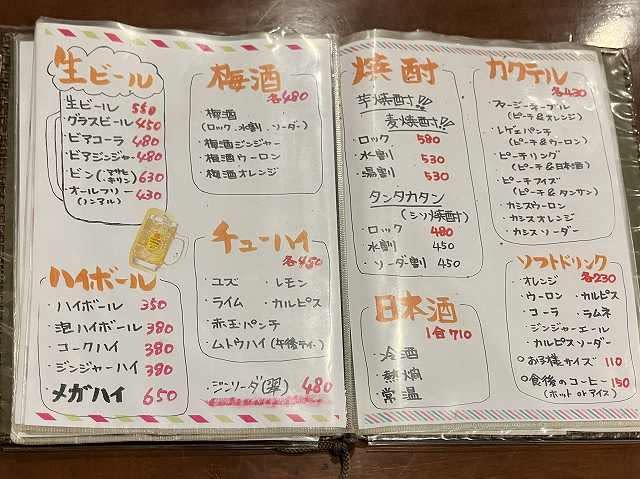 生ビール
生ビール 550
・グラスビール 450
・ビアコーラ 480
・ビアジンジャー 480
・ビン(アサヒ キリン) 630
・オールフリー 430
(ノンアル)
ハイボール
・ハイボール 350
・泡ハイボール 380
・コークハイ 380
・ジンジャーハイ 380
・メガハイ 650
梅酒
各480
・梅酒
(ロック、水割、ソーダー)
・梅酒ジンジャー
・梅酒ウーロン
・梅酒オレンジ
チューハイ
各450
・ユズ ・レモン
・ライム ・カルピス
・赤玉パンチ
・ムトウハイ(午後ティー)
・ジンソーダ(翠) 480
焼酎
芋焼酎!!
麦焼酎!!
・ロック 580
・水割 530
・湯割 530
タンタカタン
(シソ焼酎)
・ロック 480
・水割 450
・ソーダー割 450
日本酒
1合710
・冷酒
・熱燗
・常温
カクテル
各430
・ファジーネーブル
(ピーチ&オレンジ)
・レゲエパンチ
(ピーチ&ウーロン)
・ピーチリング
(ピーチ&日本酒)
・ピーチフィズ
(ピーチ&タンサン)
・カシスウーロン
・カシスオレンジ
・カシスソーダー
ソフトドリンク
各230
・オレンジ
・ウーロン ・カルピス
・コーラ ・ラムネ
・ジンジャーエール
・カルピスソーダー
○お子様サイズ 110
○食後のコーヒー 150
(ホット or アイス)